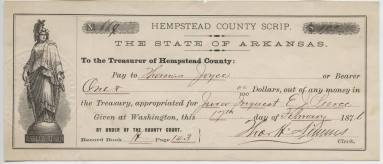 HEMPSTEAD COUNTY SCRIP.
THE STATE OF ARKANSAS.
To the Treasurer of Hempstead County:
Pay to Thomas Joyce or Bearer
One & 00/100 Dollars, out of any money in
the Treasury, appropriated for Juror Inquest E. J. 
Given at Washington, this 17th day of February 187
BY ORDER OF THE COUNTY COURT.
Record Book H Page 143
Clerk.